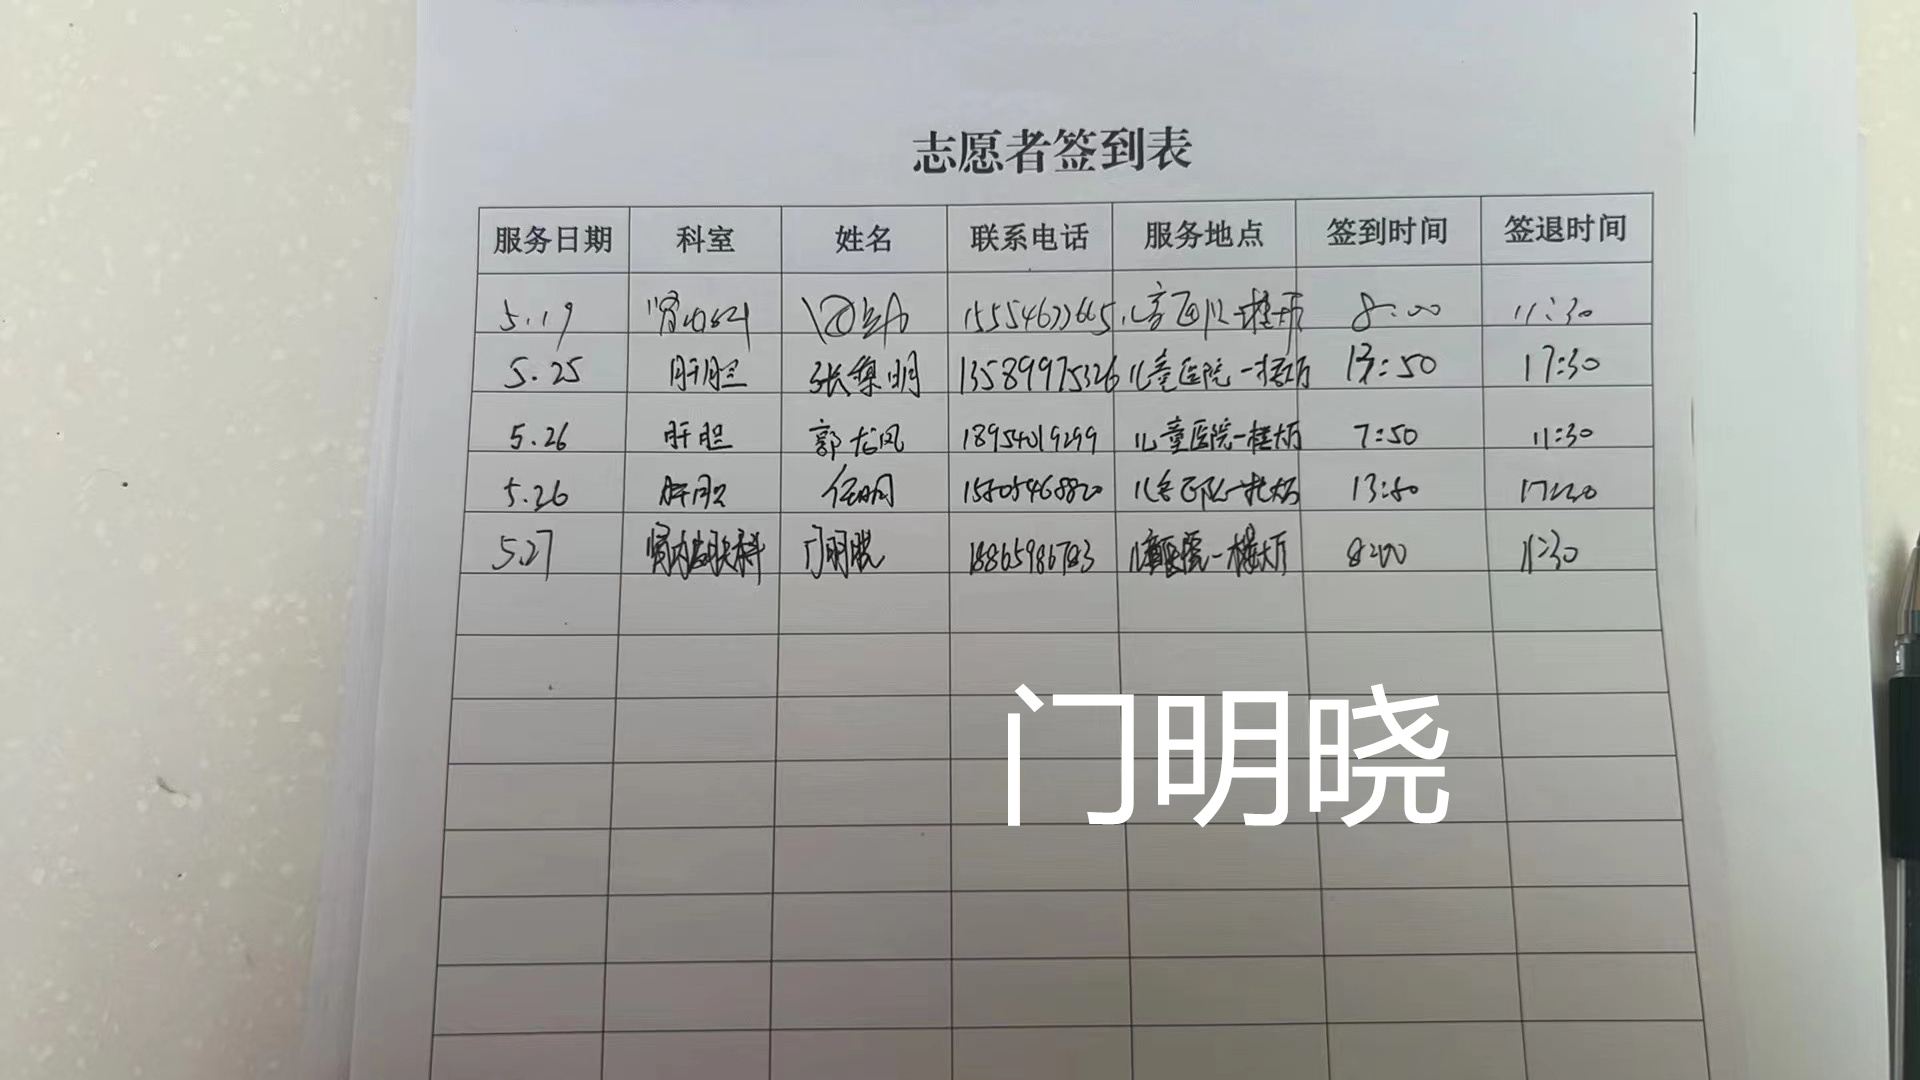 志愿者签到表
服务日期 科室 姓名 联系电话 服务地点 签到时间 签退时间
5.19 8:00 11:30
5.25 肝胆 张集明 13589975326 儿童医院一楼大厅 13:50 17:30
5.26 肝胆 郭龙凤 18954019299 儿童医院一楼大厅 7:50 11:30
5.26 肝胆 任明 儿童医院一楼大厅 13:50 17:30
5.27 门明晓 18865986783 儿童医院一楼大厅 8:00 11:30
门明晓